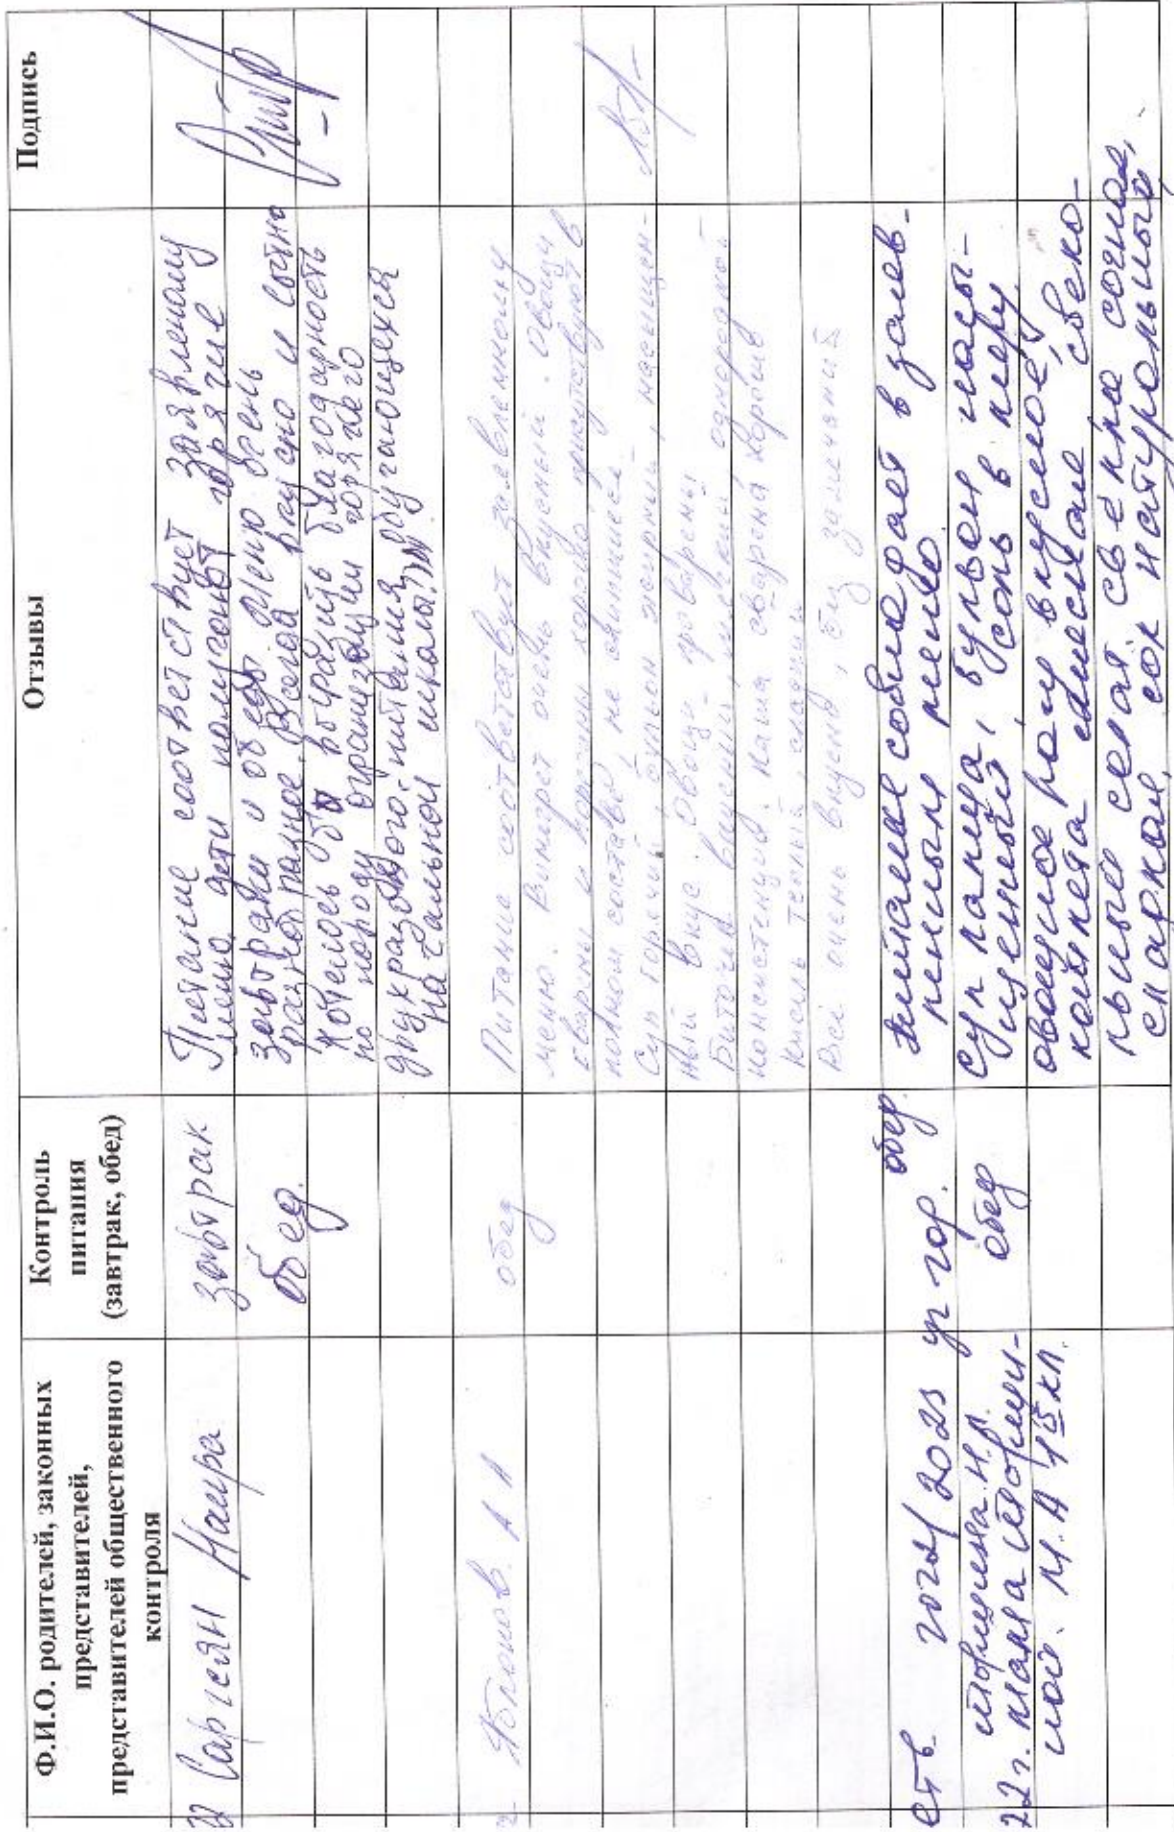 Ф.И.О. родителей, законных
представителей,
представителей общественного
контроля
Контроль
питания
(завтрак, обед)
Отзывы
Подпись
Саргсян Наира
завтрак
обед.
Питание соответствует заявленому
меню, дети получают горячие
завтраки и обед. Меню очень
разнообразное. Всегда вкусно и сытно
Хотелось бы выразить благодарность
по поводу организации горячего
двухразового питания обучающихся
начальной школы.
А А
обед
Питание соответствует заявленному
меню. Винигрет очень вкусный. Овощи
сварены и нарезаны хорошо, присутствуют в
полном составе, не слипшиеся.
Суп горячий, бульон жирный, насыщен-
ный вкус. Овощи проварены
Биточки вкусный, мягкий, однородной
консистенции, каша сварена хорошо
Кисель теплый, сладкий
Всё очень вкусно, без замечаний
2023
обед.
22 г. мама
М.А 1Б кл.
обед
питание соблюдает в заяв-
ленным меню
Суп лапша, бульон насы-
щенный, соль в меру
овощное рагу вкусное,
котлета мясная свеко-
сок натуральный,